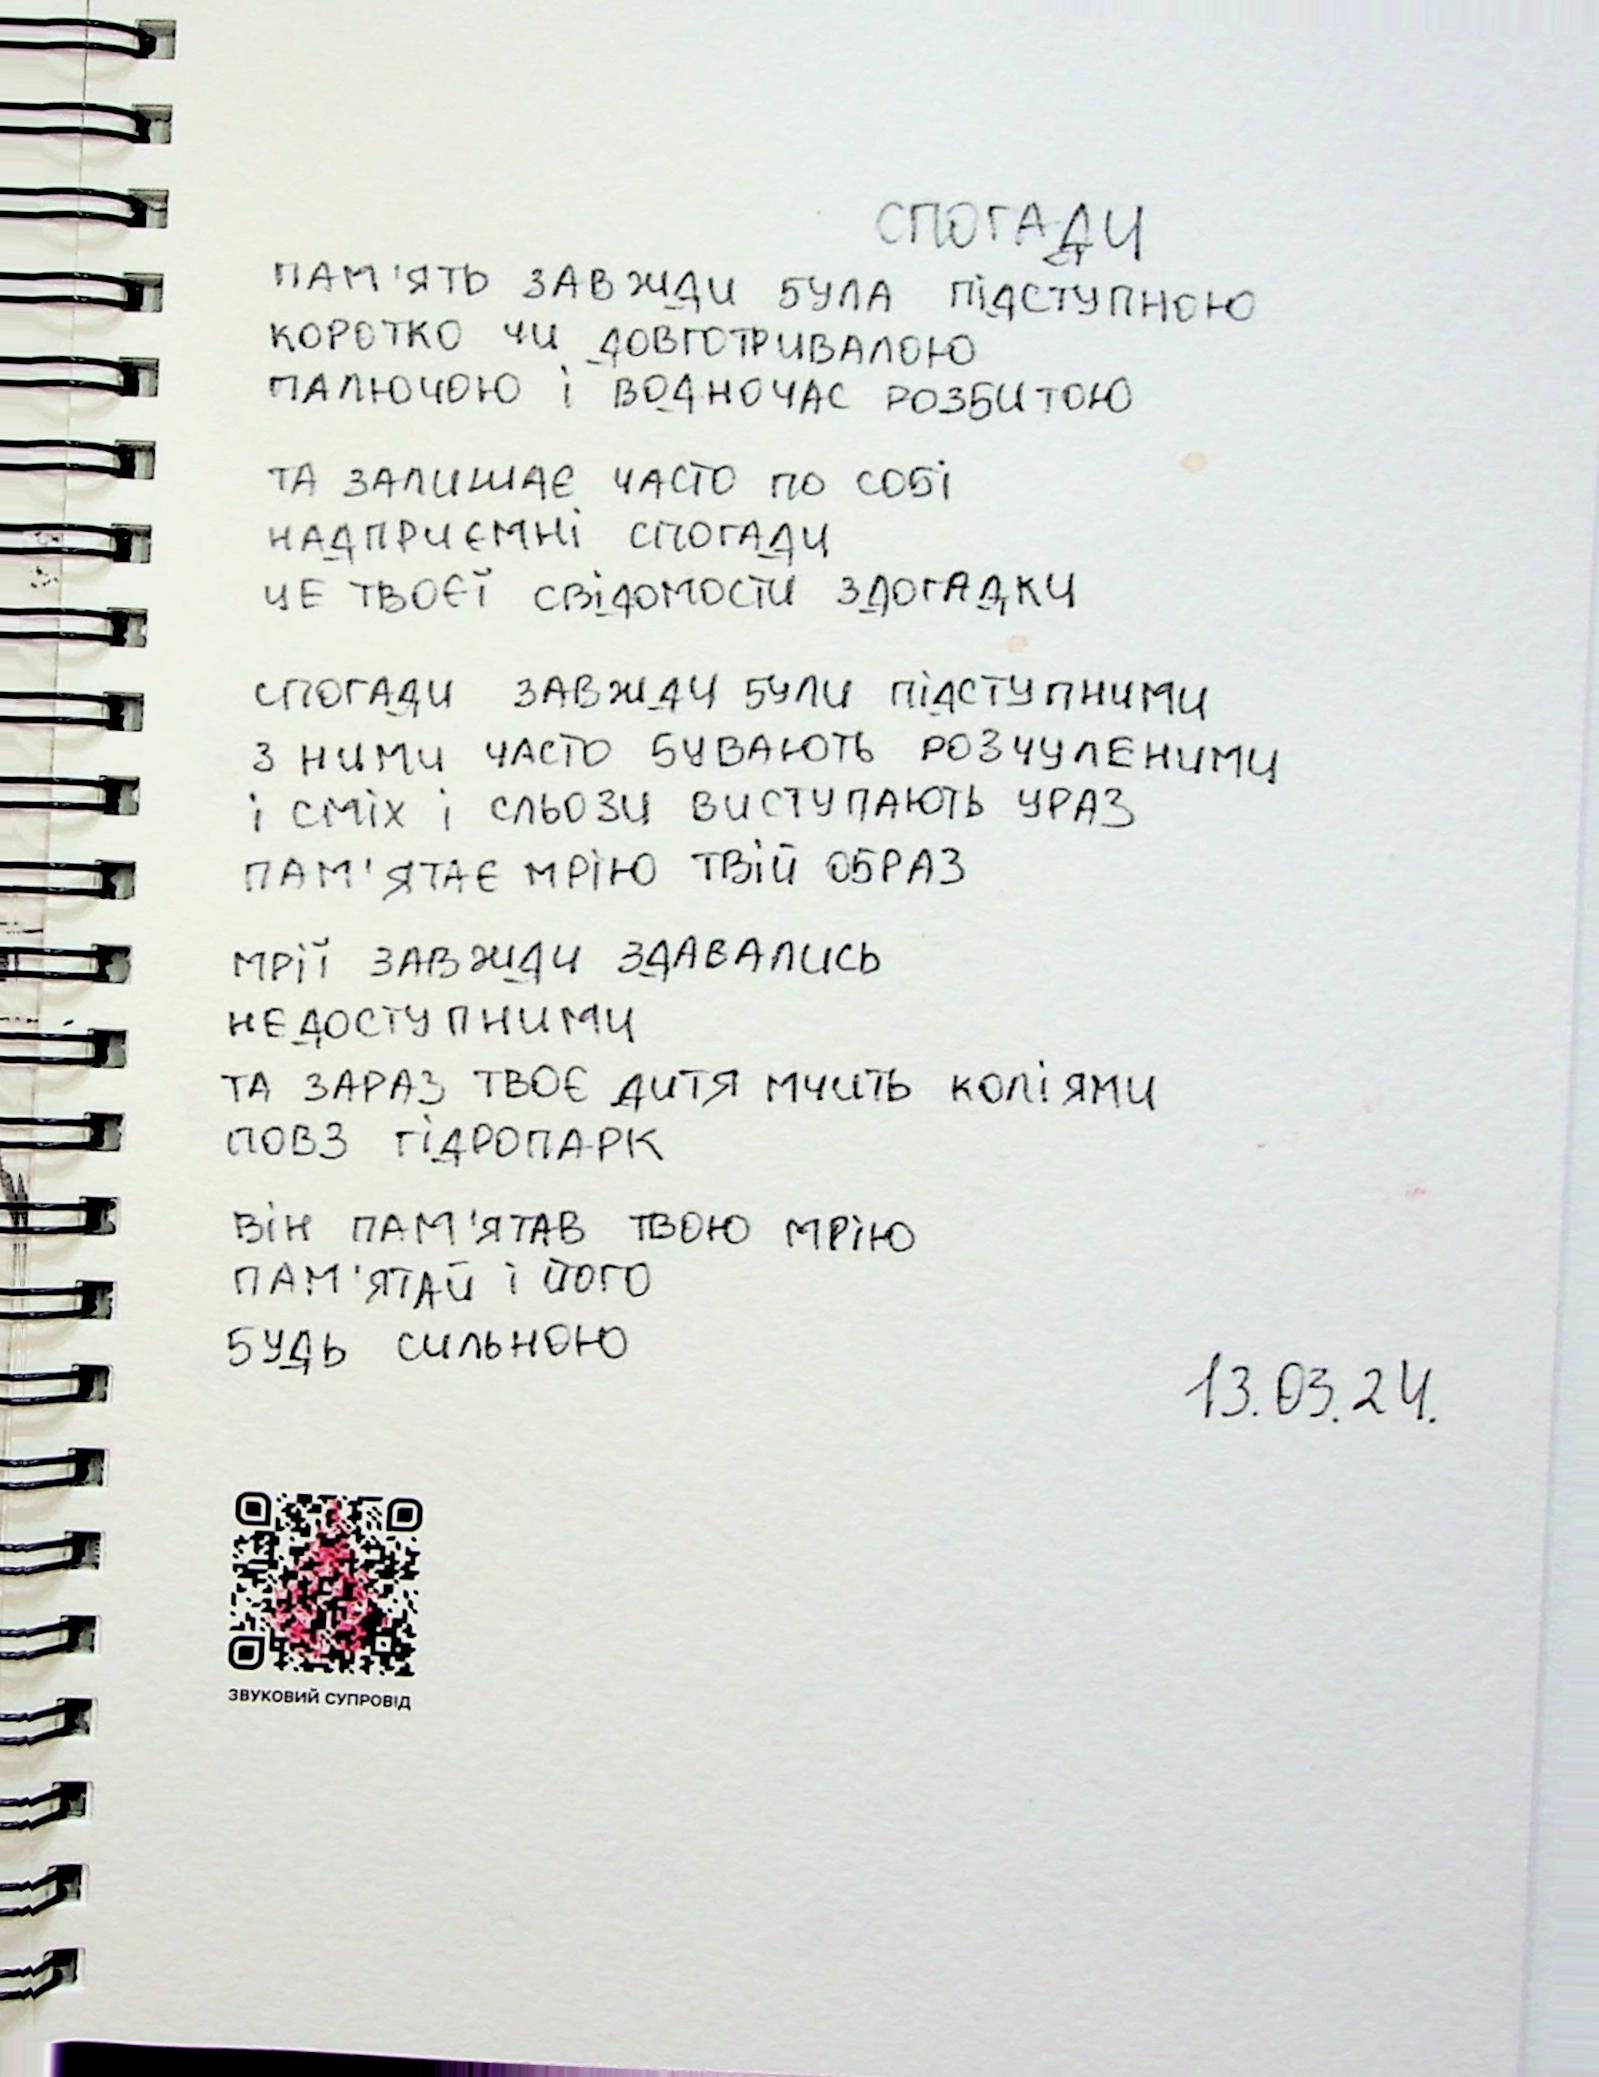 СПОГАДИ
ПАМ'ЯТЬ ЗАВЖДИ БУЛА ПІДСТУПНОЮ
КОРОТКО ЧИ ДОВГОТРИВАЛОЮ
ПАЛЮЧОЮ І ВОДНОЧАС РОЗБИТОЮ
ТА ЗАЛИШАЄ ЧАСТО ПО СОБІ
НАДПРИЄМНІ СПОГАДИ
ЦЕ ТВОЄЇ СВІДОМОСТИ ЗДОГАДКИ
СПОГАДИ ЗАВЖДИ БУЛИ ПІДСТУПНИМИ
З НИМИ ЧАСТО БУВАЮТЬ РОЗЧУЛЕНИМИ
І СМІХ І СЛЬОЗИ ВИСТУПАЮТЬ УРАЗ
ПАМ'ЯТАЄ МРІЮ ТВІЙ ОБРАЗ
МРІЇ ЗАВЖДИ ЗДАВАЛИСЬ
НЕДОСТУПНИМИ
ТА ЗАРАЗ ТВОЄ ДИТЯ МЧИТЬ КОЛІЯМИ
ПОВЗ ГІДРОПАРК
ВІН ПАМ'ЯТАВ ТВОЮ МРІЮ
ПАМ'ЯТАЙ І ЙОГО
БУДЬ СИЛЬНОЮ
13.03.24.
ЗВУКОВИЙ СУПРОВІД